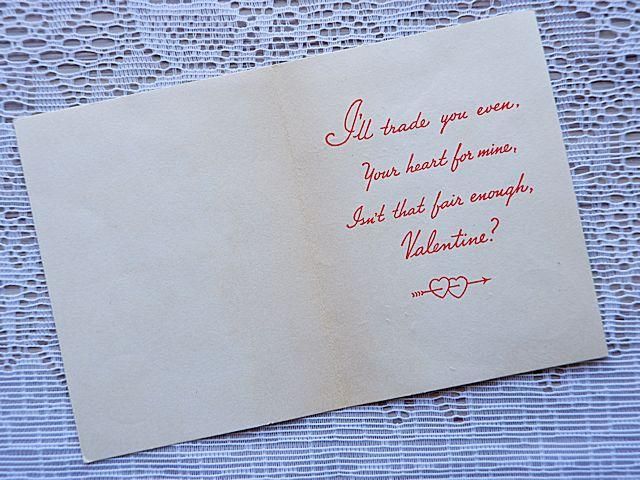 I'll trade you even,
Your heart for mine,
Isn't that fair enough,
Valentine?